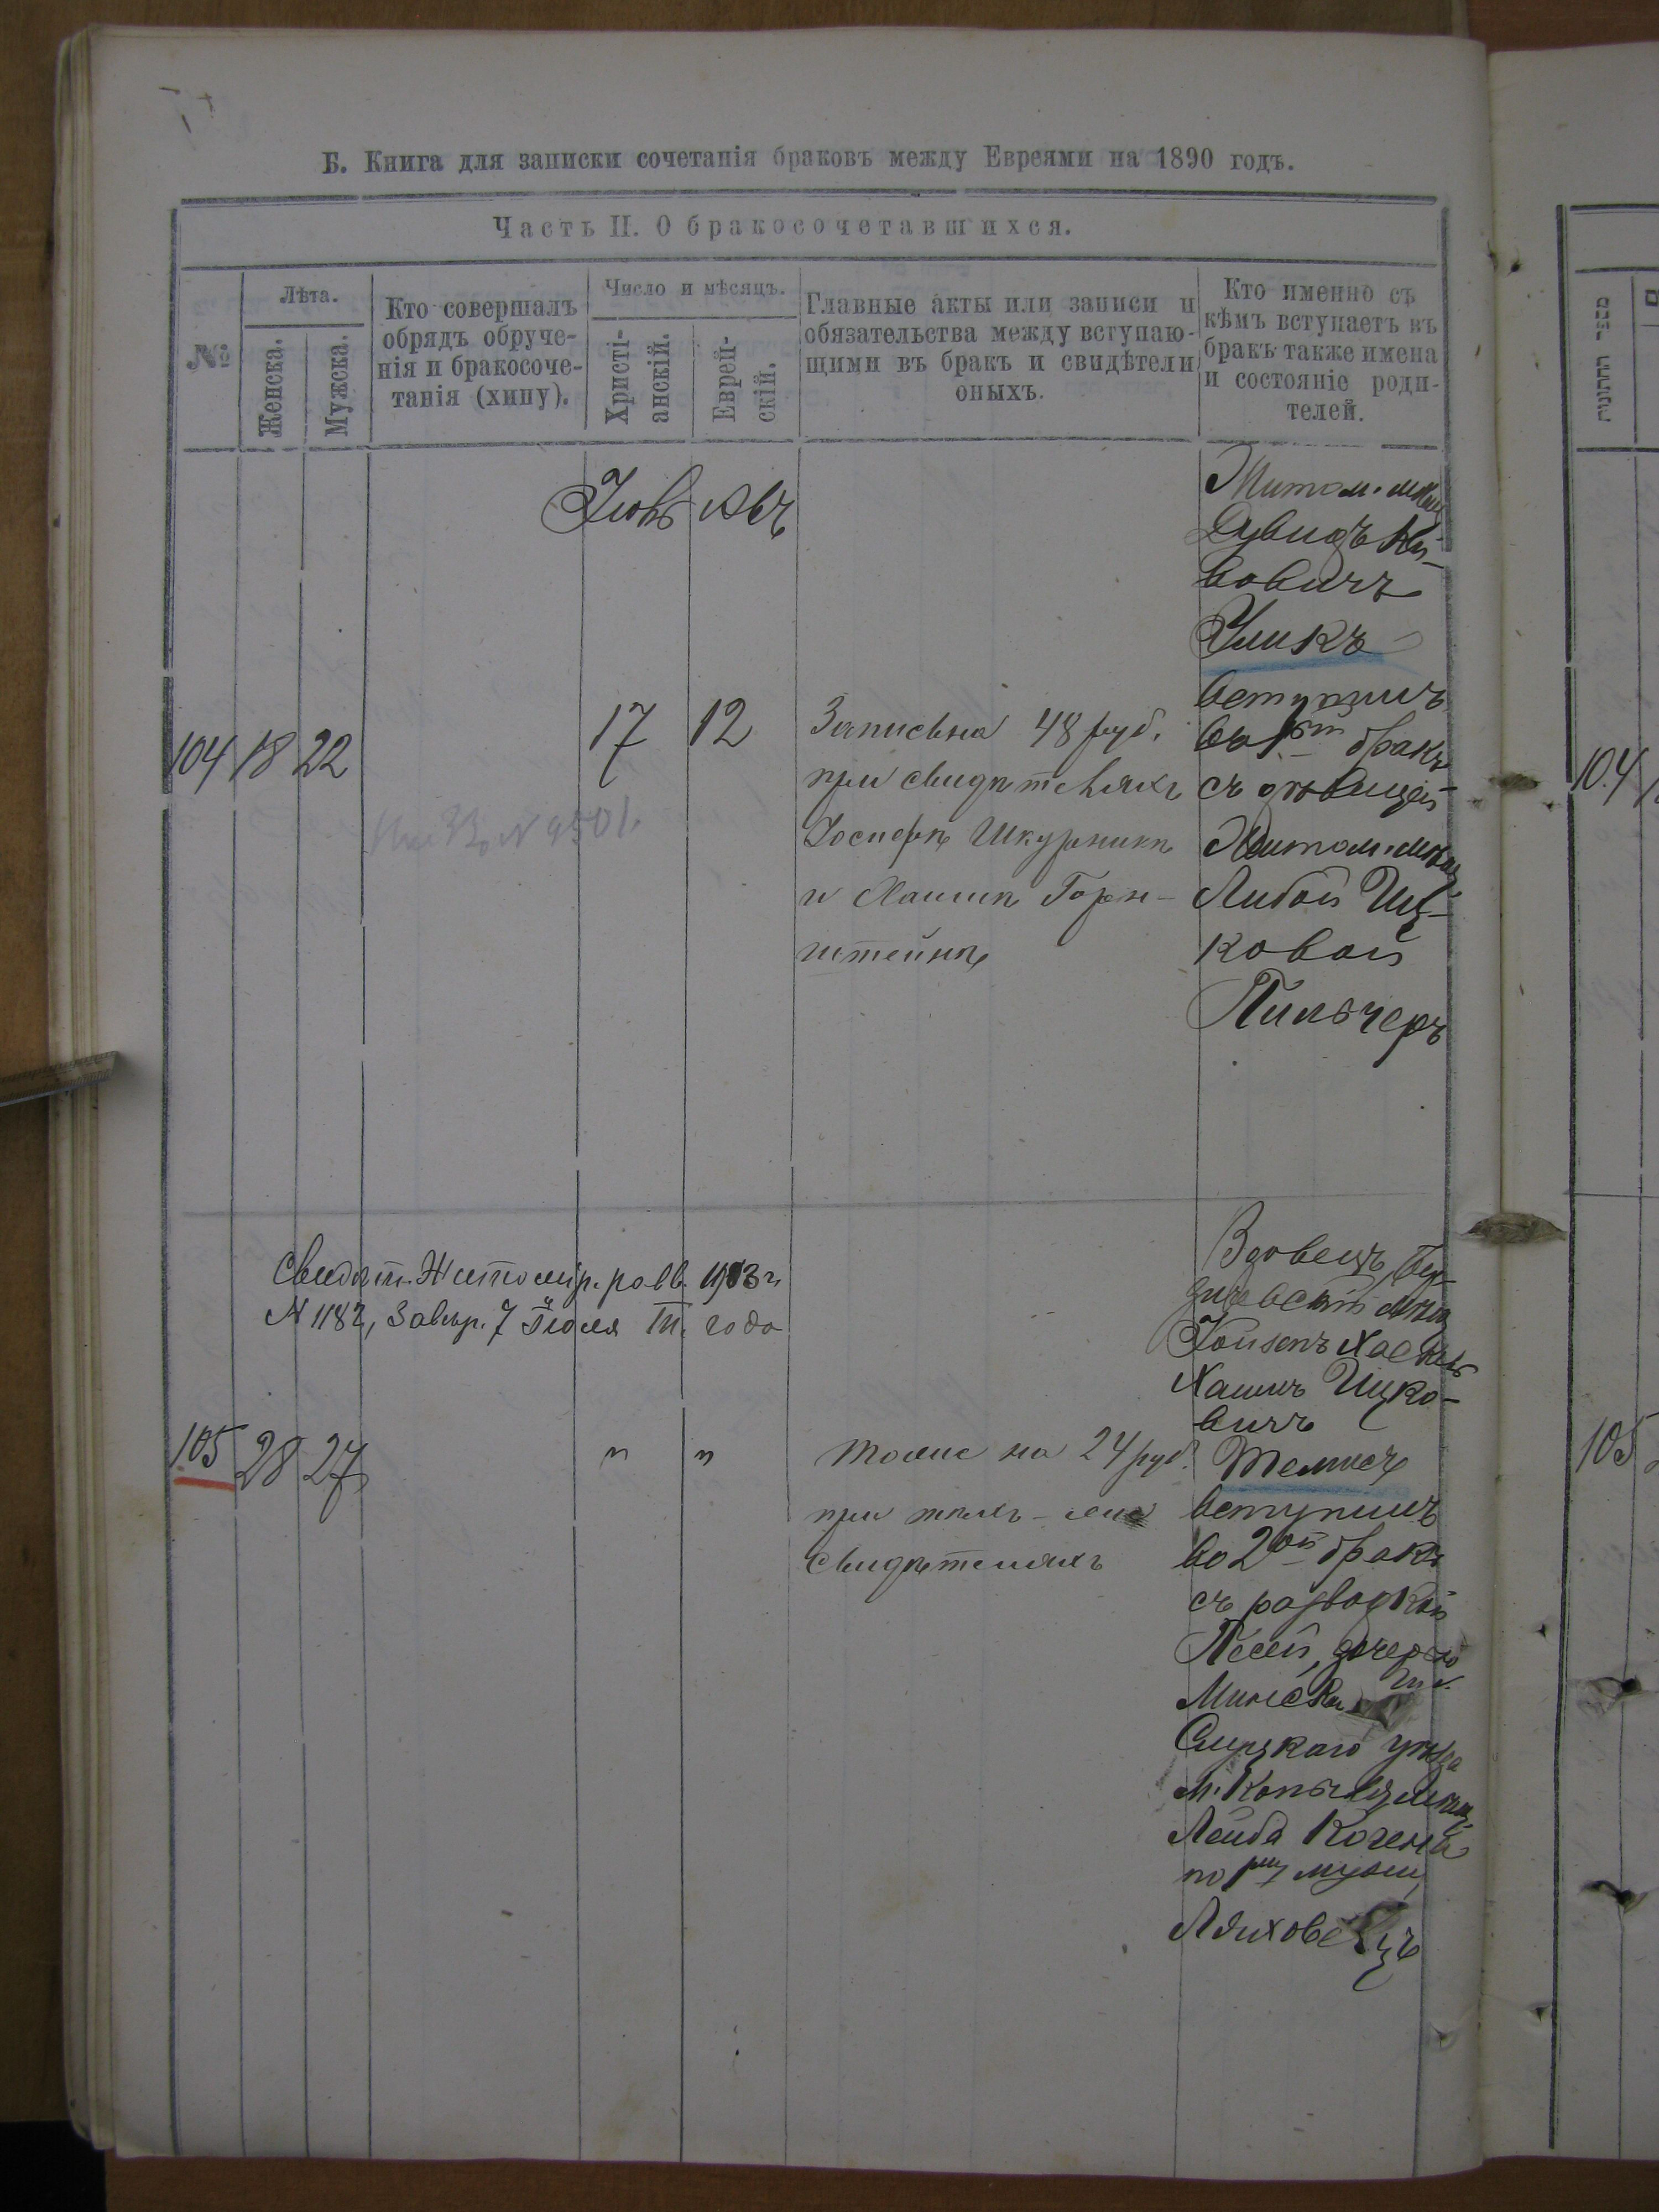 Б. Книга для записки сочетанія браковъ между Евреями на 1890 годъ.
Часть II. О бракосочетавшихся.
№
Лѣта.
Женска.
Мужска.
Кто совершалъ
обрядъ обруче-
нія и бракосоче-
танія (хипу).
Число и мѣсяцъ.
Христі-
анскій.
Еврей-
скій.
Главные акты или записи и
обязательства между вступаю-
щими въ бракъ и свидѣтели
оныхъ.
Кто именно съ
кѣмъ вступаетъ въ
бракъ также имена
и состояніе роди-
телей.
Авъ
104 18 22
17 12
Запись на 48 руб.
при свидѣтеляхъ
Іосифѣ Шкурникѣ
и Хаимѣ Горн-
штейнѣ
Житом. мѣщ.
Дувидъ
вовичъ
вступилъ
въ 1й бракъ
съ дѣвицей
Житом. мѣщ.
Либой Иц-
ковой
Пильчеръ
Свидѣт. Житомір. равв. 1913 г.
№ 1182, завѣр. 7 Іюля т. года
105 28 27
" "
Тоже на 24 руб.
при тѣхъ-же
свидѣтеляхъ
Вдовецъ Бер-
дичевскій мѣщ.
Хаимъ Ицко-
вичъ
вступилъ
во 2ой бракъ
съ разводкой
Песей, дочерью
Минск.
Слуцкаго уѣзда
м. Копыля мѣщ.
Лейба
по 1му мужу
Ляховецъ
מספר החתונות
104
105